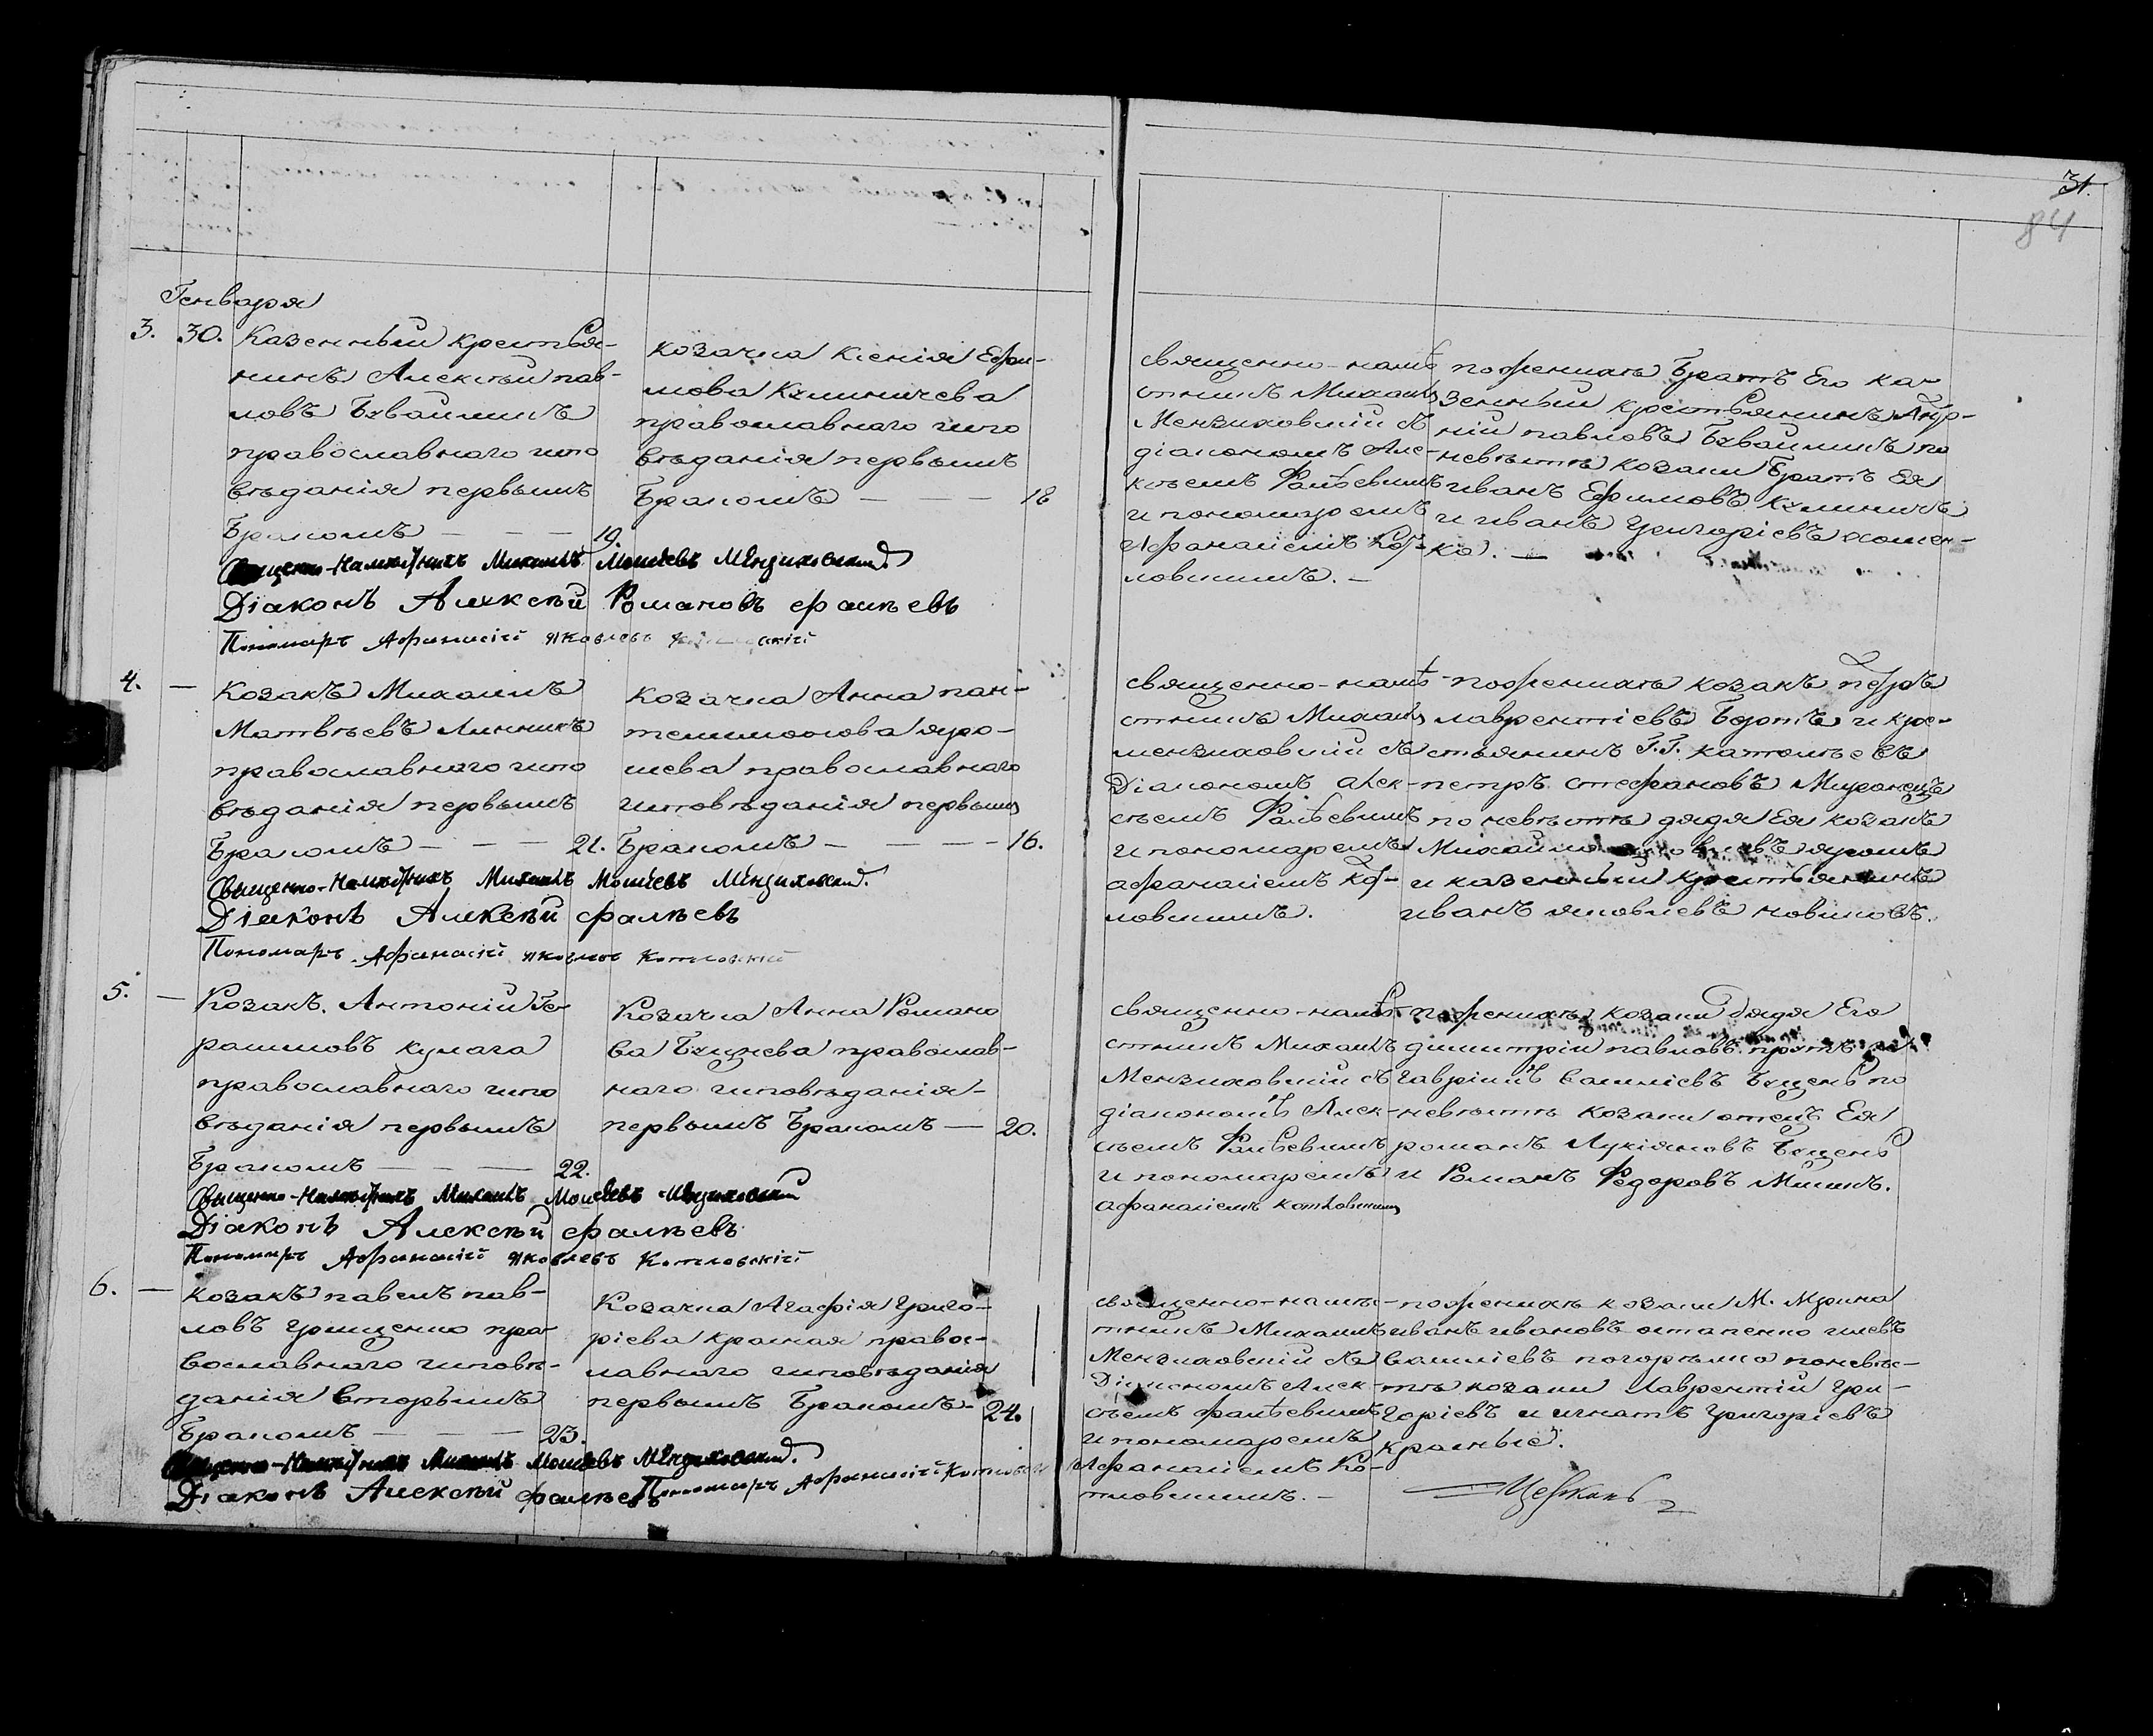 31.
84
Генваря
3. 30. Казенный крестья-
нинъ Алексѣй Пав-
ловъ Бувайликъ
православнаго испо
вѣданія первымъ
бракомъ — — — 19.
козачка Ксенія Ефи-
мова Климичева
православнаго испо
вѣданія первымъ
бракомъ — — — 18
священно-намѣ
стникъ Михаилъ
Мензиховскій съ
діакономъ Але-
ксѣемъ Фалѣевымъ
и пономаремъ
Афанасіемъ Кот-
ловскимъ. —
по женихѣ братъ Его ка-
зенный крестьянинъ
Павловъ Бувайликъ по
невѣстѣ козаки братъ Ея
Иванъ Ефимовъ Климичъ
и Иванъ Григоріевъ Хомен-
ко. —
Священно-Намѣстникъ Михаилъ Моисеевъ Мензиховский.
Діаконъ Алексѣй Романовъ Фалѣевъ
Пономарь Афанасій Яковлевъ
4. — Козакъ Михаилъ
Матвѣевъ Линникъ
православнаго испо
вѣданія первымъ
бракомъ — — — 21.
Козачка Анна Пан-
телимонова Яро-
шева православнаго
исповѣданія первымъ
бракомъ — — — 16.
священно-намѣ-
стникъ Михаилъ
Мензиховскій съ
Діакономъ Алек-
сѣемъ Фалѣевымъ
и пономаремъ
Афанасіемъ Кот-
ловскимъ.
по женихѣ козакъ Петръ
Лаврентіевъ и кре-
стьянинъ Г.Г.
Петръ Стефановъ
по невѣстѣ дядя Ея козакъ
Михаилъ Ярошъ
и казенный крестьянинъ
Иванъ Яковлевъ Новиковъ.
Священно-Намѣстникъ Михаилъ Моисеевъ Мензиховский.
Діаконъ Алексѣй Фалѣевъ
Пономарь Афанасій Яковлевъ Котловскій
5. — Козакъ Антоній Ге-
расимовъ Кулага
православнаго испо
вѣданія первымъ
бракомъ — — — 22.
Козачка Анна Романо
ва Буцнева православ-
наго исповѣданія
первымъ бракомъ — 20.
священно-намѣ-
стникъ Михаилъ
Мензиховскій съ
діакономъ Алек-
сѣемъ Фалѣевымъ
и пономаремъ
Афанасіемъ Котловскимъ
по женихѣ козаки дядя Его
Димитрій Павловъ
Гавріилъ Василіевъ по
невѣстѣ козаки отецъ Ея
Романъ Лукіяновъ
и Романъ Федоровъ
Священно-Намѣстникъ Михаилъ Моисеевъ Мензиховский
Діаконъ Алексѣй Фалѣевъ
Пономарь Афанасій Яковлевъ Котловскій
6. — Козакъ Павелъ Пав-
ловъ Грищенко пра-
вославнаго исповѣ-
данія вторымъ
бракомъ — — — 23.
Козачка Агафія Григо-
ріева Красная правос-
лавнаго исповѣданія
первымъ бракомъ — 24.
священно-намѣ-
стникъ Михаилъ
Мензиховскій съ
Діакономъ Алек-
сѣемъ Фалѣевымъ
и пономаремъ
Афанасіемъ Ко-
тловскимъ. —
по женихѣ козаки М. Мрина
Иванъ Ивановъ Остапенко
Василіевъ Погорѣлко по невѣ-
стѣ козаки Лаврентій Гри-
горіевъ и Игнатъ Григоріевъ
Красные.
Священно-Намѣстникъ Михаилъ Моисеевъ Мензиховский.
Діаконъ Алексѣй Фалѣевъ
Пономарь Афанасій